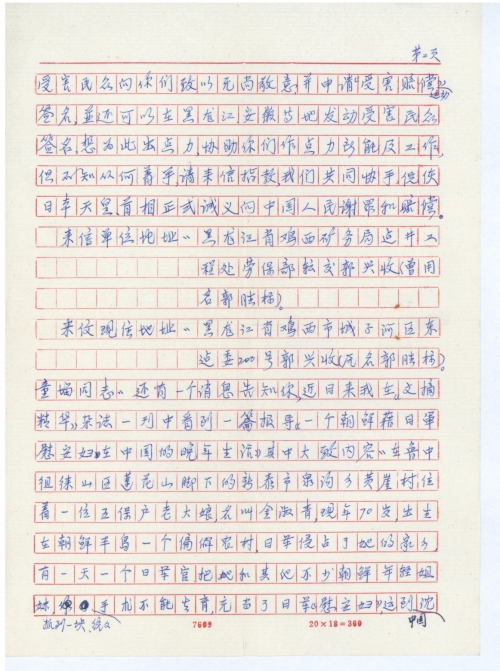 第二页
受害民众向你们致以无尚敬意,并申请“受害赔偿”运动
签名,並还可以在黑龙江安徽等地发动受害民众
签名,想为此出点力,协助你们作点力所能及工作,
但不知从何着手,请来信指教,我们共同协手促使
日本天皇、首相正式诚义向中国人民谢罪和赔偿。
来信单位地址“黑龙江省鸡西矿务局 井工
程处劳保部转交郭兴收(曾用
名郭胜标)。
来仪现住地址“黑龙江省鸡西市城子河区东
委200号郭兴收(曾用名郭胜标)。
童增同志“还有一个消息告知你,近日来我在《文摘
精华》杂誌一刊中看到一篇报导《一个朝鲜籍日軍
慰安妇在中国的晚年生活》其中大致内容“在鲁中
徂徕山区莲花山脚下的新泰市泉沟乡黄崖村住
着一位五保户老大娘名叫金淑青,现年70岁,出生
在朝鲜半岛一个偏僻农村,日军侵占了她的家乡,
有一天一个日军官把她和其他不少朝鲜年轻姐
妹, 手术不能生育,充当了日军《慰安妇》,运到沈
抓到一块,
中国
7609 20×18=360